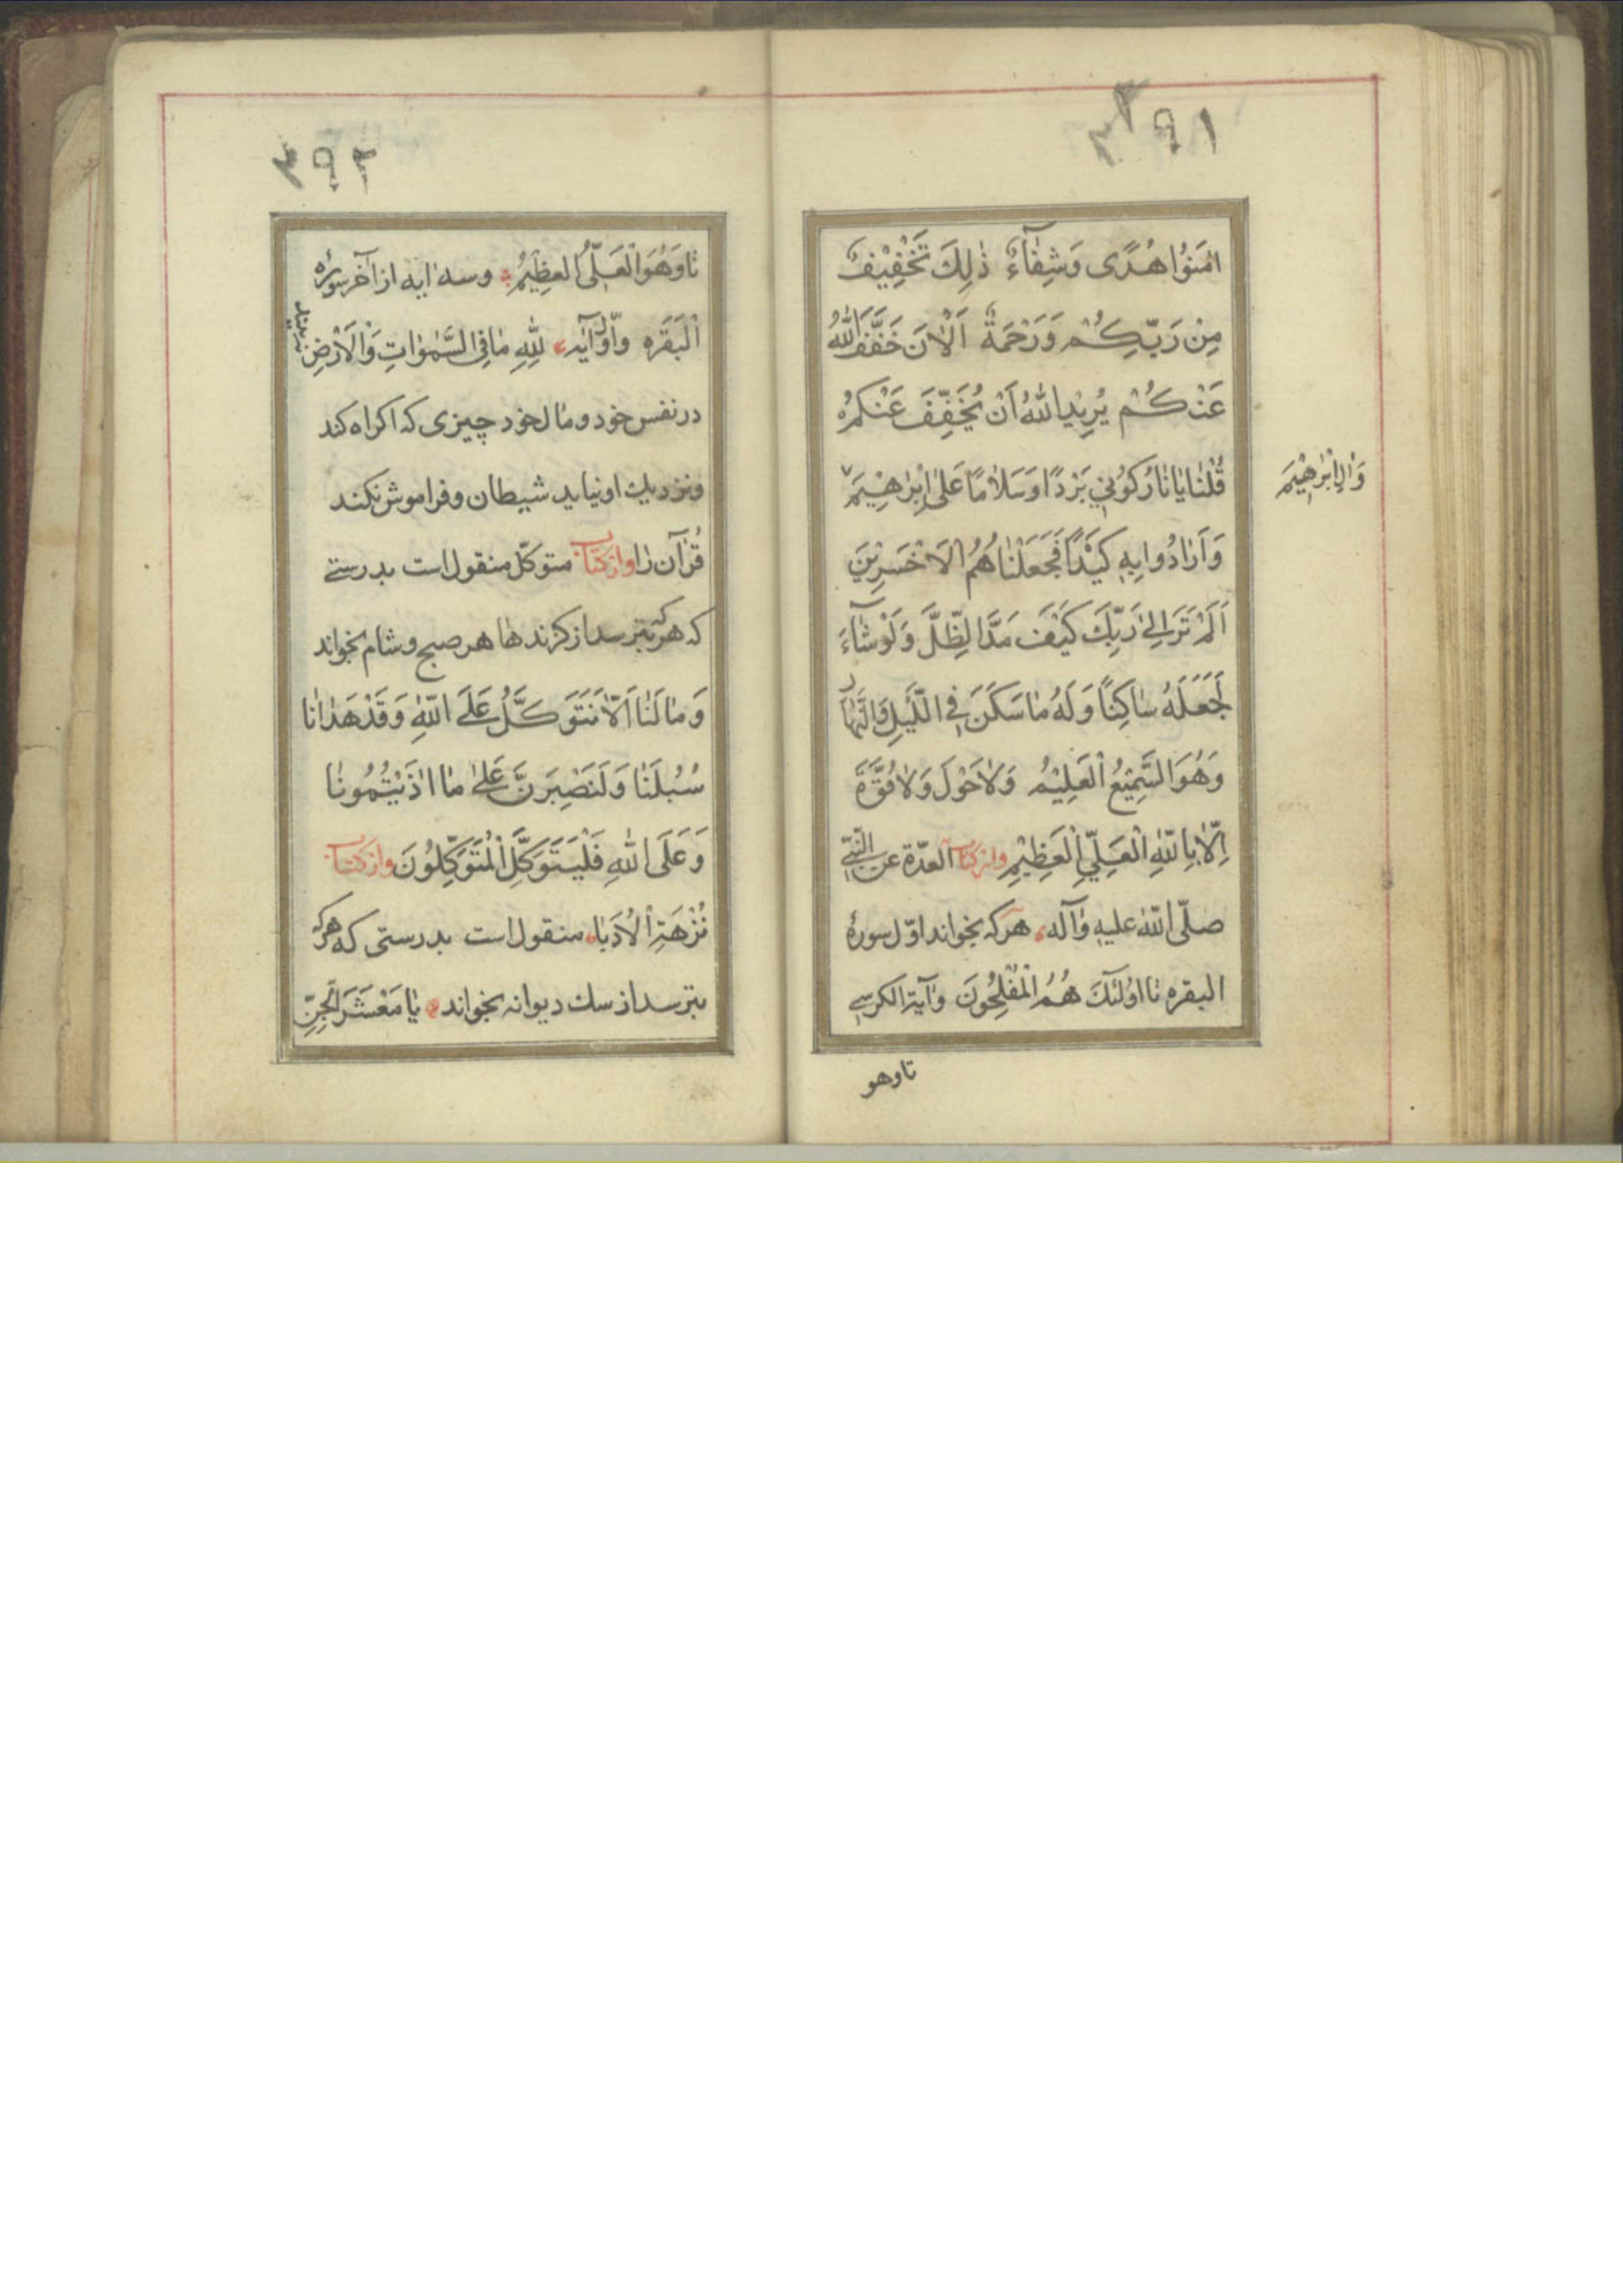 ۳۹۱
اٰمَنُوا هُدًى وَشِفٰآءٌ ذٰلِكَ تَخْفِيْفٌ
مِنْ رَبِّكُمْ وَرَحْمَةٌ اَلْاٰنَ خَفَّفَ اللّٰهُ
عَنْكُمْ يُرِيْدُ اللّٰهُ اَنْ يُخَفِّفَ عَنْكُمْ
قُلْنٰا يٰا نٰارُ كُوْنِي بَرْدًا وَسَلٰامًا عَلٰى اِبْرٰهِيْمَ
وَاٰلِ اِبْرٰهِيْمَ
وَاَرٰادُوا بِهِ كَيْدًا فَجَعَلْنٰاهُمُ الْاَخْسَرِيْنَ
اَلَمْ تَرَ اِلٰى رَبِّكَ كَيْفَ مَدَّ الظِّلَّ وَلَوْ شٰآءَ
لَجَعَلَهُ سٰاكِنًا وَلَهُ مٰا سَكَنَ فِي اللَّيْلِ وَالنَّهٰارِ
وَهُوَ السَّمِيْعُ الْعَلِيْمُ وَلٰا حَوْلَ وَلٰا قُوَّةَ
اِلّٰا بِاللّٰهِ الْعَلِيِّ الْعَظِيْمِ وازكتاب العدّة عن النّبيّ
صلّى اللّٰه عليه وآله هركه بخواند اوّل سورهٔ
البقره تا اولٰئكَ هُمُ الْمُفْلِحُونَ وآية الكرسي
تا وهو
۳۹۲
تا وَهُوَ الْعَلِيُّ العظِيْمُ وسه ايه از آخر سورهٔ
اَلْبَقَره واوّل آيه لِلّٰهِ مٰا فِي السَّمٰوٰاتِ وَالْاَرْضِ
نه بيند
در نفس خود ومال خود چيزى كه اكراه كند
ونزديك او نيايد شيطان وفراموش نكند
قُرْآن را وازكتاب متوكّل منقول است بدرستے
كه هركه بترسد از كزندها هر صبح و شام بخواند
وَمٰا لَنٰا اَلّٰا نَتَوَكَّلَ عَلَى اللّٰهِ وَقَدْ هَدٰانٰا
سُبُلَنٰا وَلَنَصْبِرَنَّ عَلٰى مٰا اٰذَيْتُمُونٰا
وَعَلَى اللّٰهِ فَلْيَتَوَكَّلِ الْمُتَوَكِّلُونَ وازكتاب
نُزْهَةِ الْاُدَبٰاء منقول است بدرستى كه هركه
بترسد از سك ديوانه بخواند يٰا مَعْشَرَ الْجِنِّ